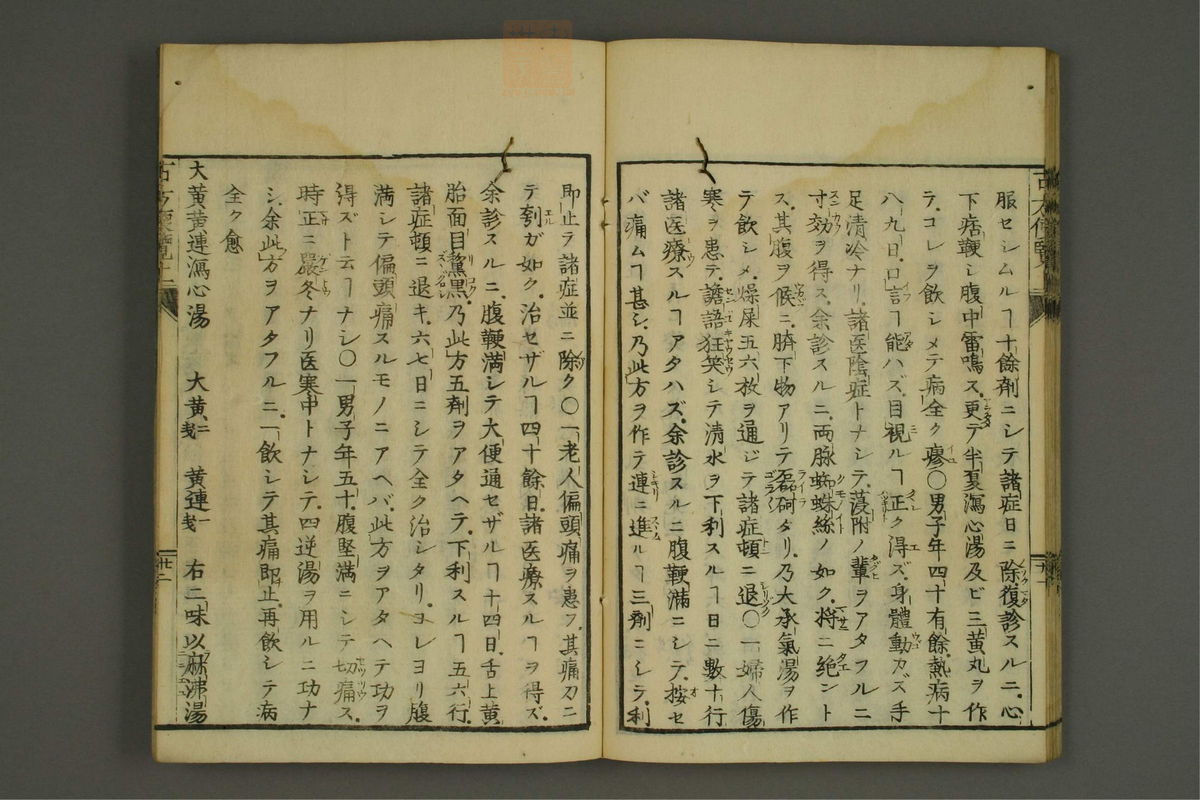 服セシムルヿ十餘剤ニシテ諸症日ニ除復診スルニ心
下痞鞕シ腹中雷鳴ス更ニ半夏瀉心湯及ビ三黄丸ヲ作
テコレヲ飲シメテ病全ク瘳○男子年四十有餘熱病十
八九日口言フヿ能ハズ目視ルヿ正ク得ズ身體動カズ手
足清冷ナリ諸医陰症トナシテ薓附ノ輩ヲアタフルニ
寸効ヲ得ス余診スルニ両脉蜘蛛絲ノ如ク将ニ絶ント
ス其腹ヲ候ニ臍下物アリテ磊砢タリ乃大承氣湯ヲ作
テ飲シメ燥屎五六枚ヲ通ジテ諸症頓ニ退○一婦人傷
寒ヲ患テ譫語狂笑シテ清水ヲ下利スルヿ日ニ數十行
諸医療スルヿアタハズ余診スルニ腹鞕滿ニシテ按セ
バ痛ムヿ甚シ乃此方ヲ作テ連ニ進ルヿ三劑ニシテ利
即止テ諸症並ニ除ク○一老人偏頭痛ヲ患フ其痛刀ニ
テ刳ガ如ク治セザルヿ四十餘日諸医療スルヿヲ得ズ
余診スルニ腹鞕満シテ大便通セザルヿ十四日舌上黄
胎面目黧黒乃此方五剤ヲアタヘテ下利スルヿ五六行
諸症頓ニ退キ六七日ニシテ全ク治シタリヨレヨリ腹
満シテ偏頭痛スルモノニアヘバ此方ヲアタヘテ功ヲ
得ズト云ヿナシ○一男子年五十腹堅満ニシテ切痛ス
時正ニ嚴冬ナリ医寒中トナシテ四逆湯ヲ用ルニ功ナ
シ余此方ヲアタフルニ一飲シテ其痛即止再飲シテ病
全ク愈
大黄黄連瀉心湯 大黄二戔 黄連一戔 右二味以麻沸湯